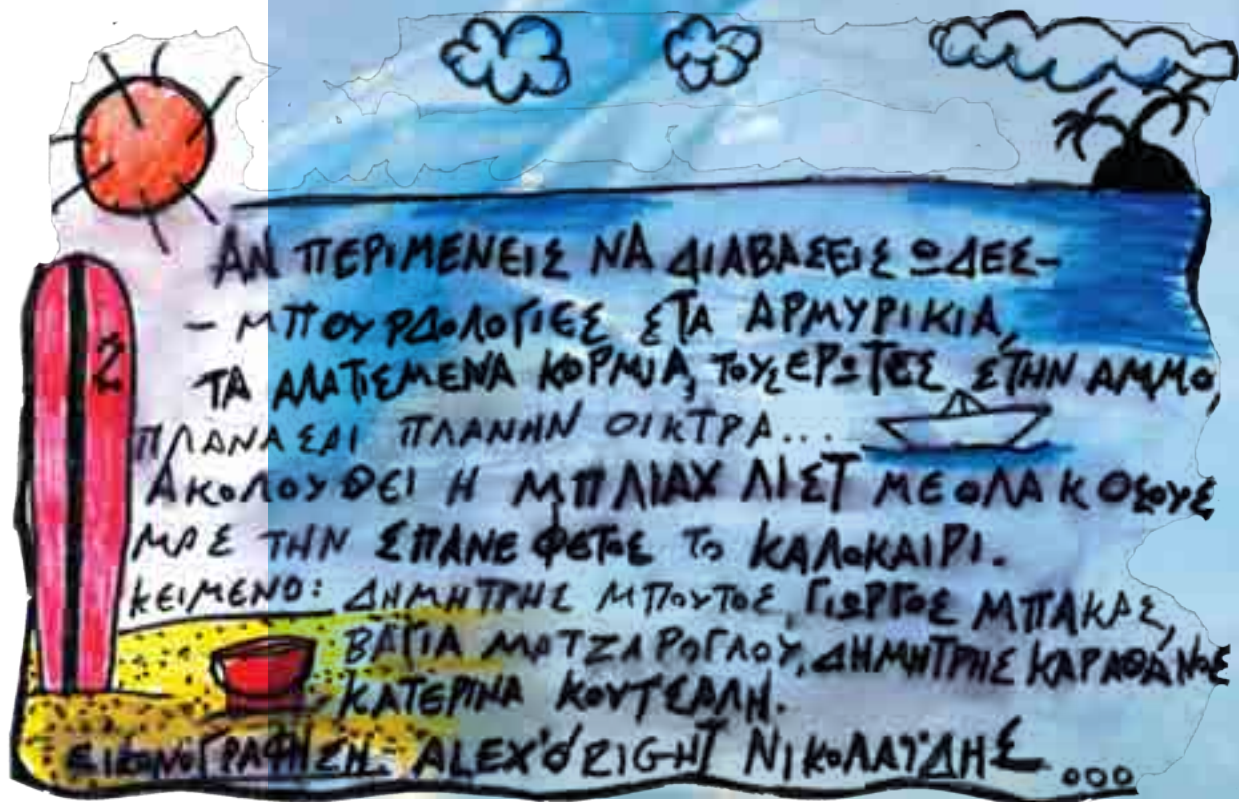 2
ΑΝ ΠΕΡΙΜΕΝΕΙΣ ΝΑ ΔΙΑΒΑΣΕΙΣ ΩΔΕΣ-
- ΜΠΟΥΡΔΟΛΟΓΙΕΣ ΣΤΑ ΑΡΜΥΡΙΚΙΑ,
ΤΑ ΑΛΑΤΙΣΜΕΝΑ ΚΟΡΜΙΑ, ΤΟΥΣ ΕΡΩΤΕΣ ΣΤΗΝ ΑΜΜΟ,
ΠΛΑΝΑΣΑΙ ΠΛΑΝΗΝ ΟΙΚΤΡΑ...
ΑΚΟΛΟΥΘΕΙ Η ΜΠΛΙΑΧ ΛΙΣΤ ΜΕ ΟΛΑ Κ ΟΣΟΥΣ
ΜΑΣ ΤΗΝ ΣΠΑΝΕ ΦΕΤΟΣ ΤΟ ΚΑΛΟΚΑΙΡΙ.
ΚΕΙΜΕΝΟ: ΔΗΜΗΤΡΗΣ ΜΠΟΥΤΟΣ, ΓΙΩΡΓΟΣ ΜΠΑΚΑΣ,
ΒΑΓΙΑ ΜΑΤΖΑΡΟΓΛΟΥ, ΔΗΜΗΤΡΗΣ ΚΑΡΑΘΑΝΟΣ
ΚΑΤΕΡΙΝΑ ΚΟΥΤΣΑΛΗ.
ΕΙΚΟΝΟΓΡΑΦΗΣΗ: ALEX'O'RIGHT ΝΙΚΟΛΑΪΔΗΣ...